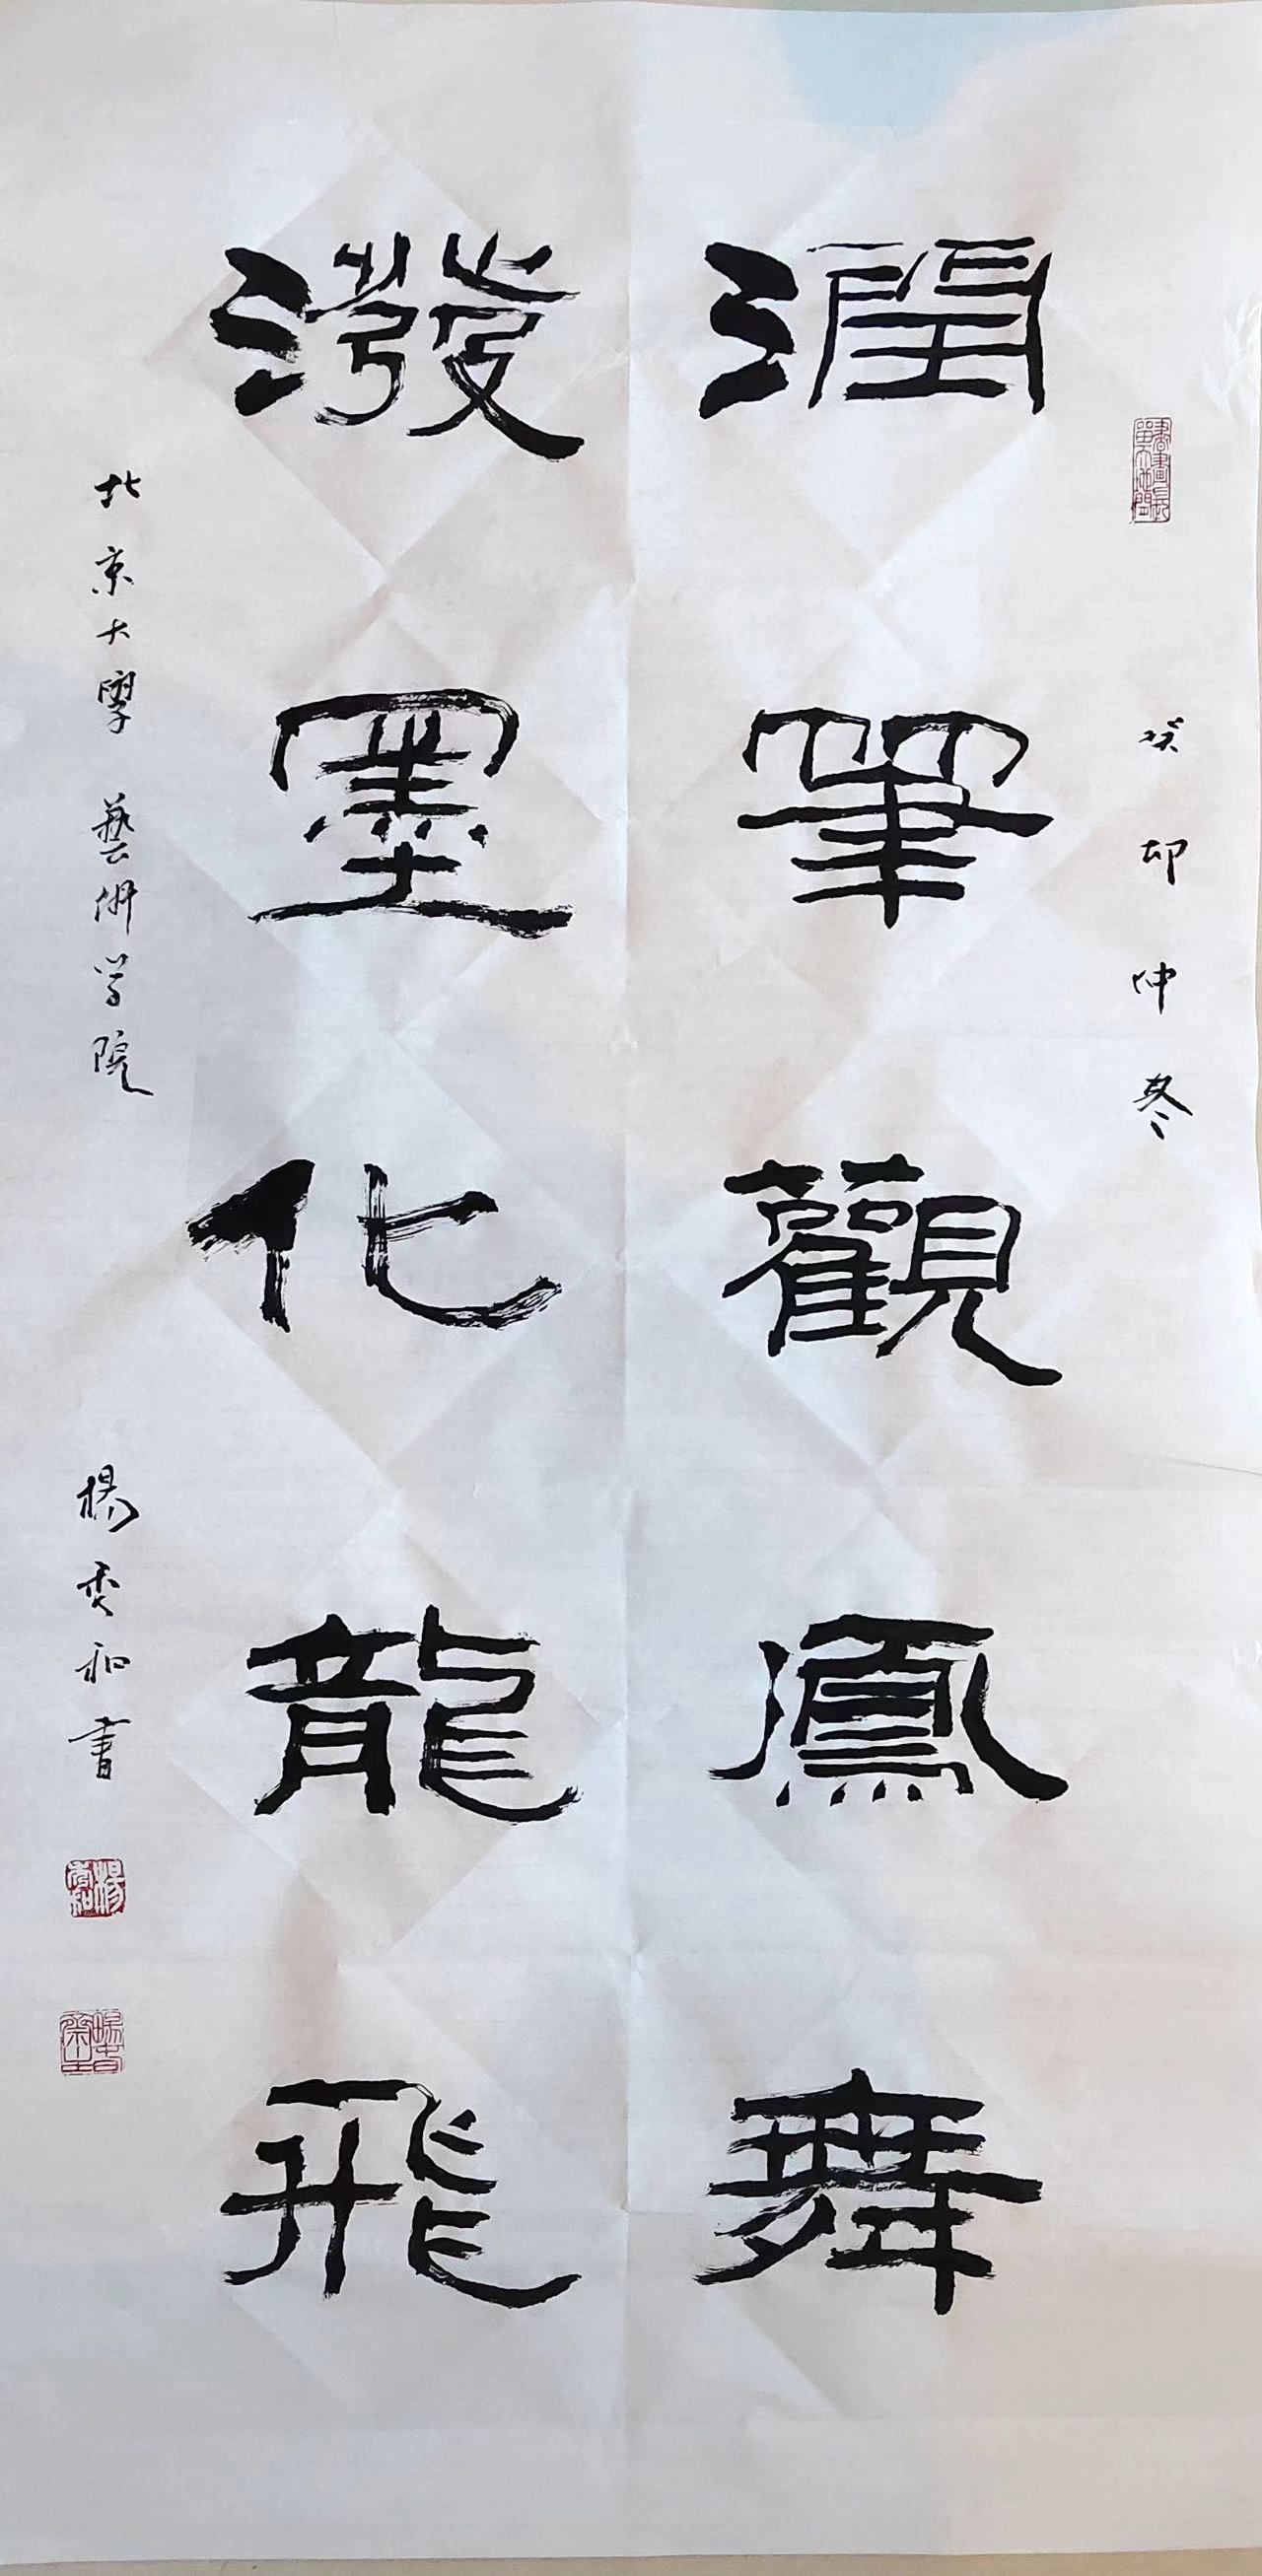 癸卯仲冬
潤筆觀鳳舞
潑墨化龍飛
北京大學 藝術学院
楊秀和書